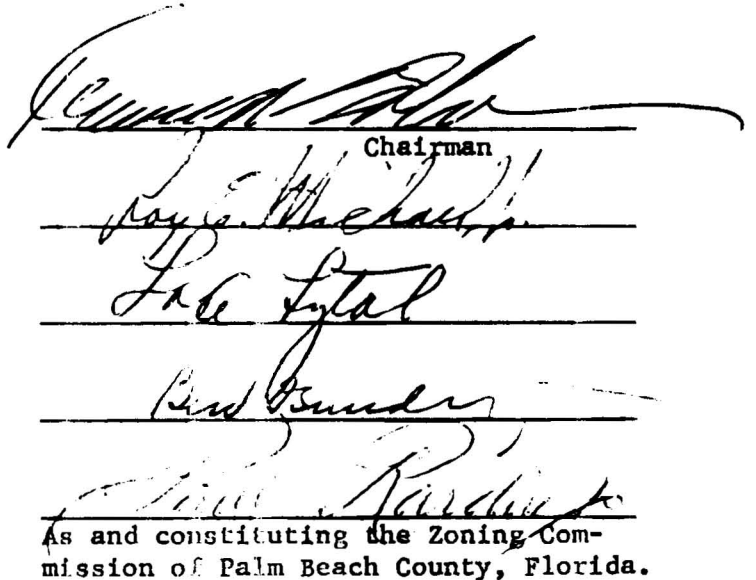 Chairman
Roy E. Michael, Jr.
Lake Lytal
Bud Bunder
Rardin Jr
As and constituting the Zoning Com-
mission of Palm Beach County, Florida.